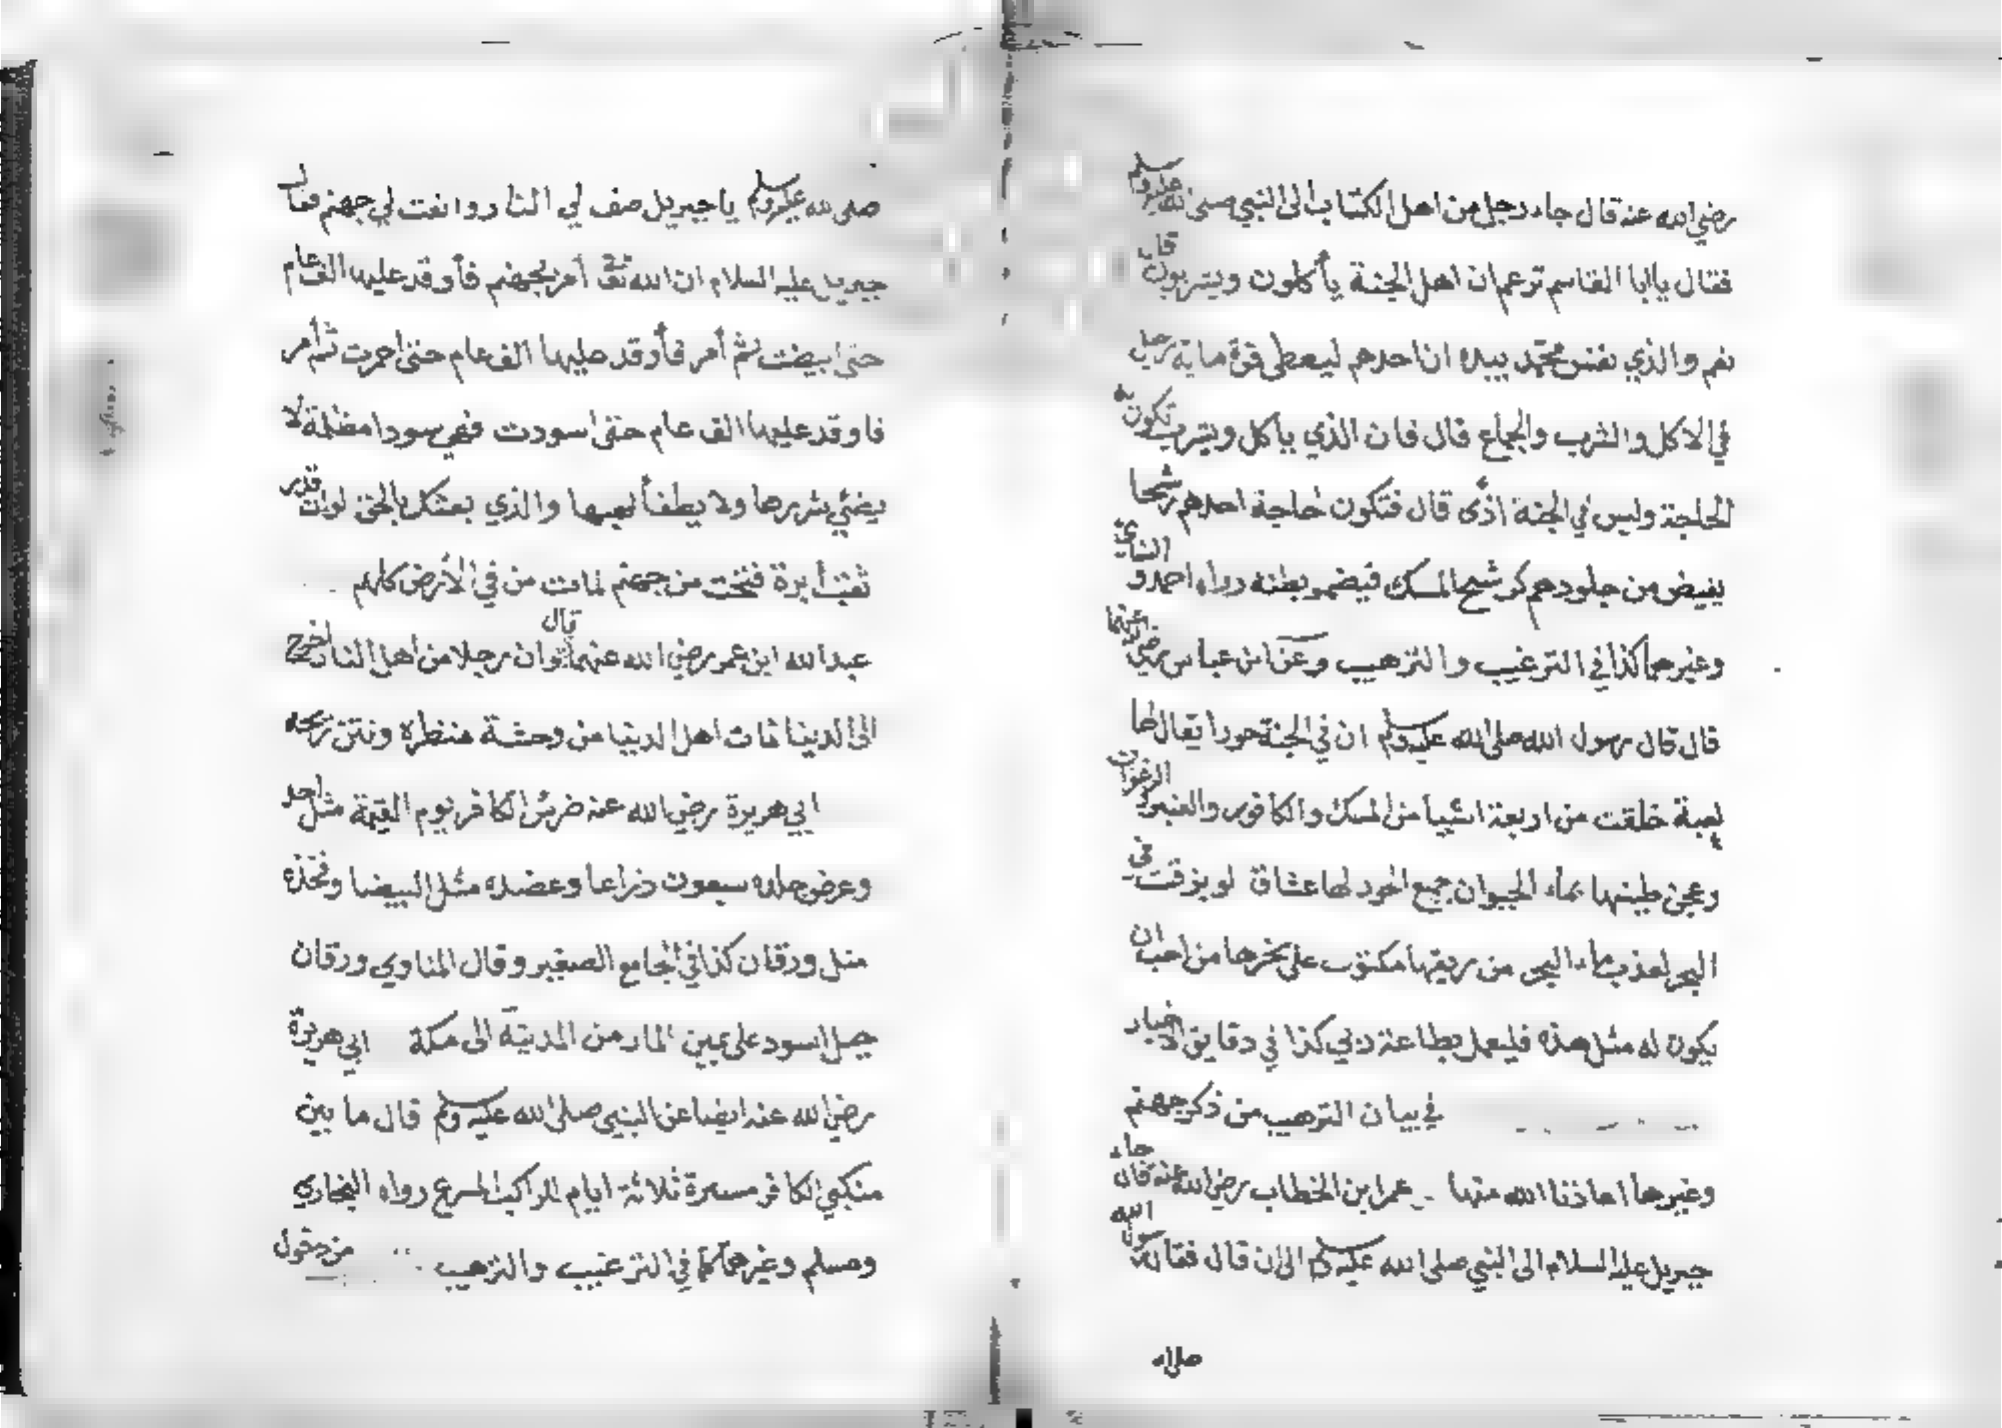 رضي الله عنه قال جاء رجل من اهل الكتاب الى النبي صلى الله عليه وسلم
فقال يا ابا القاسم تزعم ان اهل الجنة يأكلون ويشربون قال
نعم والذي نفس محمد بيده ان احدهم ليعطى قوة ماية رجل
في الاكل والشرب والجماع قال فان الذي ياكل ويشرب تكون له
الحاجة وليس في الجنة اذى قال فتكون حاجة احدهم رشحا
يفيض من جلودهم كرشح المسك فيضمر بطنه رواه احمد والنسائي
وغيرهما كذا في الترغيب والترهيب وعن ابن عباس رضي الله عنهما
قال قال رسول الله صلى الله عليه وسلم ان في الجنة حورا يقال لها
لعبة خلقت من اربعة اشيا من المسك والكافور والعنبر والزعفران
وعجن طينها بماء الحيوان جميع الحور لها عشاق لو بزقت في
البحر لعذب ماء البحر من ريقها مكتوب على نحرها من احب ان
يكون له مثل هذه فليعمل بطاعة ربي كذا في دقايق الاخبار
في بيان الترهيب من ذكر جهنم
وغيرها اعاذنا الله منها عمر ابن الخطاب رضي الله عنه قال جاء
جبريل عليه السلام الى النبي صلى الله عليه وسلم الى ان قال فقال رسول الله
صلى الله
صلى الله عليه وسلم يا جبريل صف لي النار وانعت لي جهنم فقال
جبريل عليه السلام ان الله تعالى أمر بجهنم فأوقد عليها الف عام
حتى ابيضت ثم أمر فأوقد عليها الف عام حتى احمرت ثم أمر
فاوقد عليها الف عام حتى اسودت فهي سودا مظلمة لا
يضئ شررها ولا يطفأ لهبها والذي بعثك بالحق لو ان قدر
ثقب أبرة فتحت من جهنم لمات من في الأرض كلهم
عبد الله ابن عمر رضي الله عنهما قال لو ان رجلا من اهل النار اخرج
الى الدينا لمات اهل الدينا من وحشة منظره ونتن ريحه
ابي هريرة رضي الله عنه ضرس الكافر يوم القيمة مثل احد
وعرض جلده سبعون ذراعا وعضده مثل البيضا وفخذه
مثل ورقان كذا في الجامع الصغير وقال المناوي ورقان
جبل اسود على يمين المار من المدينة الى مكة ابي هريرة
رضي الله عنه ايضا عن النبي صلى الله عليه وسلم قال ما بين
منكبي الكافر مسيرة ثلاثة ايام للراكب المسرع رواه البخاري
ومسلم وغيرهما كما في الترغيب والترهيب من دخول